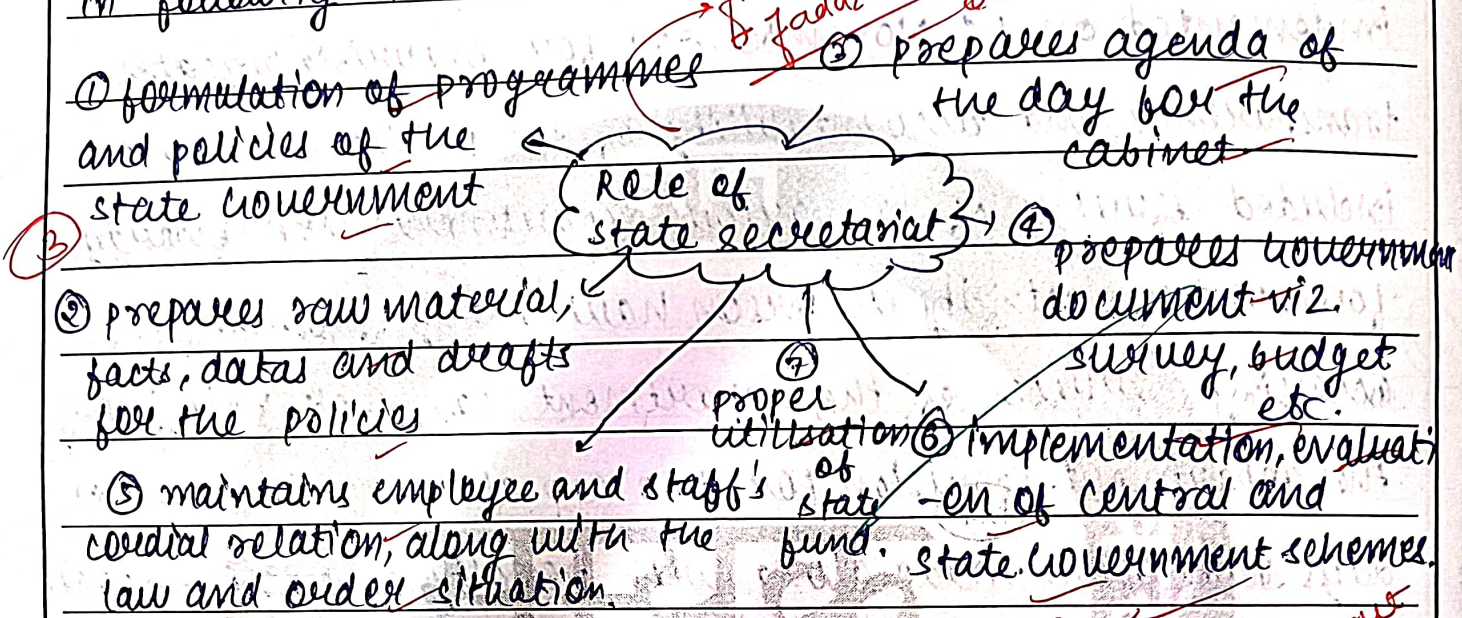 in following
① formulation of programmes
and policies of the
state Government
③ prepares agenda of
the day for the
cabinet
Role of
state secretariat
④
prepares Government
document viz.
survey, budget
etc.
3
② prepares raw material,
facts, datas and drafts
for the policies
⑦
proper
utilisation
of
state
fund.
⑥ implementation, evaluati
-on of central and
state Government schemes.
⑤ maintains employee and staff's
cordial relation, along with the
law and order situation.